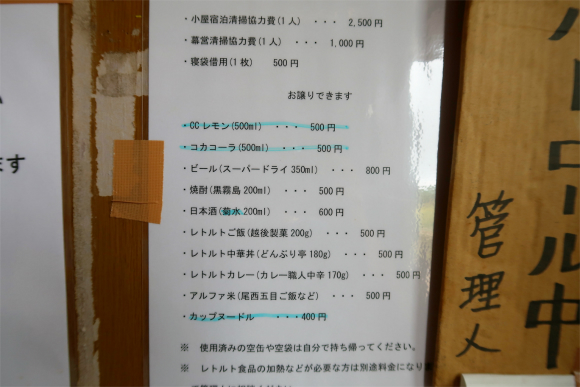 ・小屋宿泊清掃協力費(1人) ・・・ 2,500円
・幕営清掃協力費(1人) ・・・ 1,000円
・寝袋借用(1枚) 500円
お譲りできます
・CCレモン(500ml) ・・・ 500円
・コカコーラ(500ml) ・・・ 500円
・ビール(スーパードライ350ml) ・・・ 800円
・焼酎(黒霧島200ml) ・・・ 500円
・日本酒(菊水200ml) ・・・ 600円
・レトルトご飯(越後製菓200g) ・・・ 500円
・レトルト中華丼(どんぶり亭180g) ・・・ 500円
・レトルトカレー(カレー職人中辛170g) ・・・ 500円
・アルファ米(尾西五目ご飯など) ・・・ 500円
・カップヌードル ・・・400円
※ 使用済みの空缶や空袋は自分で持ち帰ってください。
※ レトルト食品の加熱などが必要な方は別途料金になり
ます
パトロール中
管理人